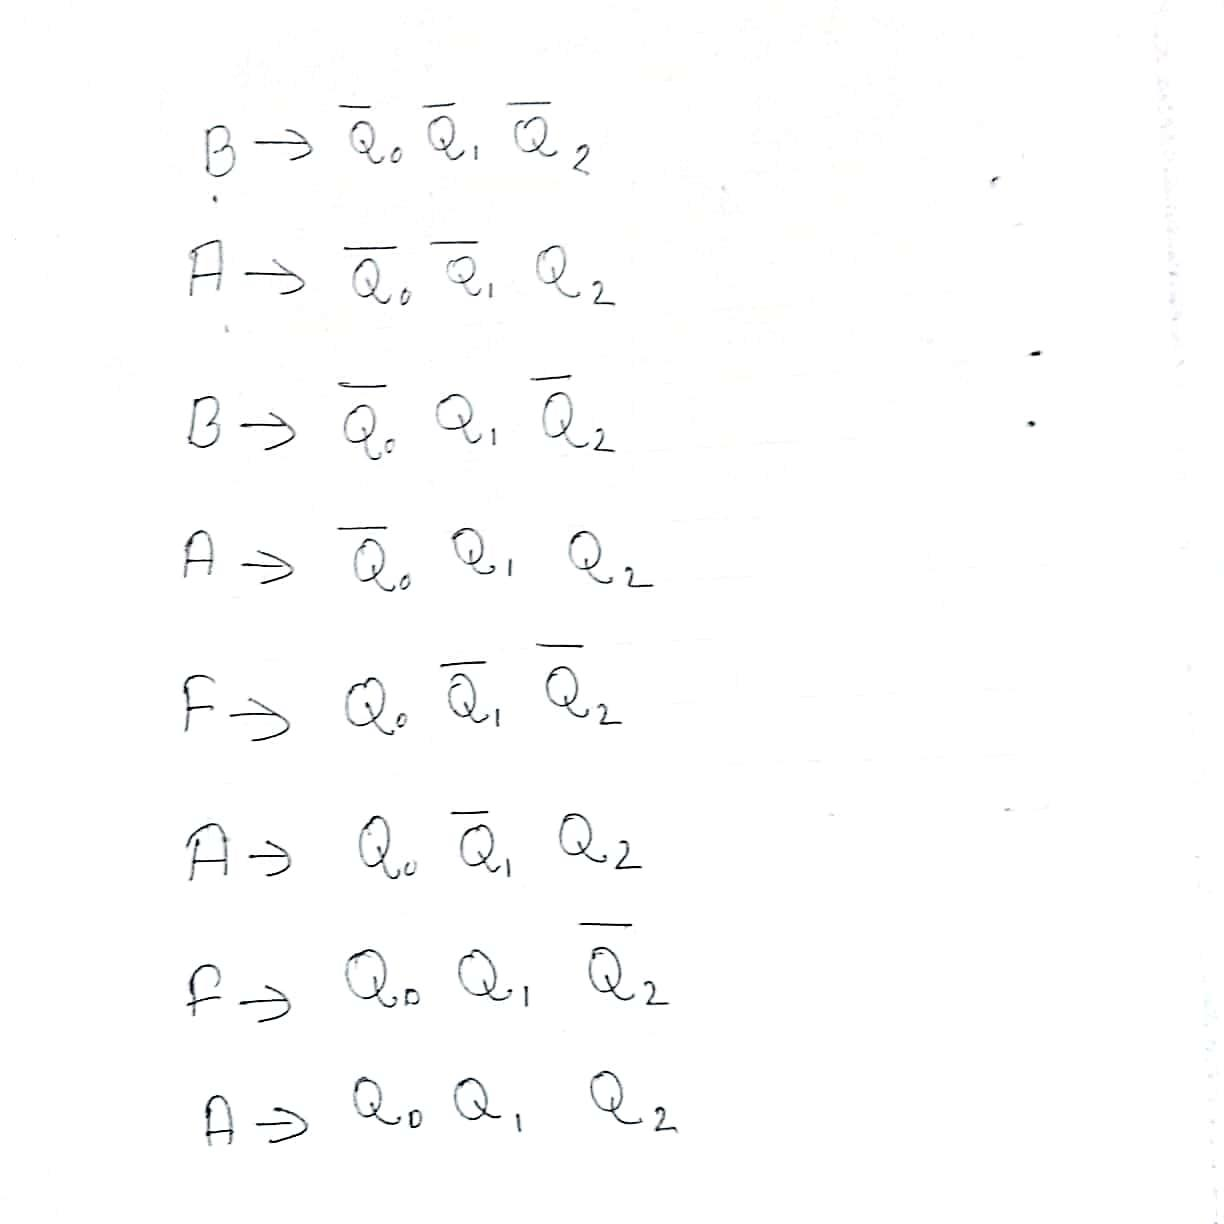 B → Q̅₀ Q̅₁ Q̅₂
A → Q̅₀ Q̅₁ Q₂
B → Q̅₀ Q₁ Q̅₂
A → Q̅₀ Q₁ Q₂
F → Q₀ Q̅₁ Q̅₂
A → Q₀ Q̅₁ Q₂
F → Q₀ Q₁ Q̅₂
A → Q₀ Q₁ Q₂